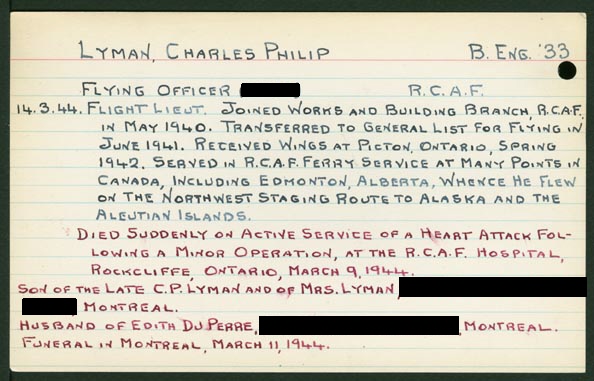 LYMAN, CHARLES PHILIP B. ENG. '33
FLYING OFFICER R.C.A.F.
14.3.44. FLIGHT LIEUT. JOINED WORKS AND BUILDING BRANCH, R.C.A.F.
IN MAY 1940. TRANSFERRED TO GENERAL LIST FOR FLYING IN
JUNE 1941. RECEIVED WINGS AT PICTON, ONTARIO, SPRING
1942. SERVED IN R.C.A.F. FERRY SERVICE AT MANY POINTS IN
CANADA, INCLUDING EDMONTON, ALBERTA, WHENCE HE FLEW
ON THE NORTHWEST STAGING ROUTE TO ALASKA AND THE
ALEUTIAN ISLANDS.
DIED SUDDENLY ON ACTIVE SERVICE OF A HEART ATTACK FOL-
LOWING A MINOR OPERATION, AT THE R.C.A.F. HOSPITAL,
ROCKCLIFFE, ONTARIO, MARCH 9, 1944.
SON OF THE LATE C.P. LYMAN AND OF MRS. LYMAN,
, MONTREAL.
HUSBAND OF EDITH DU PERRE, , MONTREAL.
FUNERAL IN MONTREAL, MARCH 11, 1944.